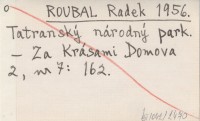 ROUBAL Radek 1956.
Tatranský národný park.
– Za Krásami Domova
2, nr 7: 162.